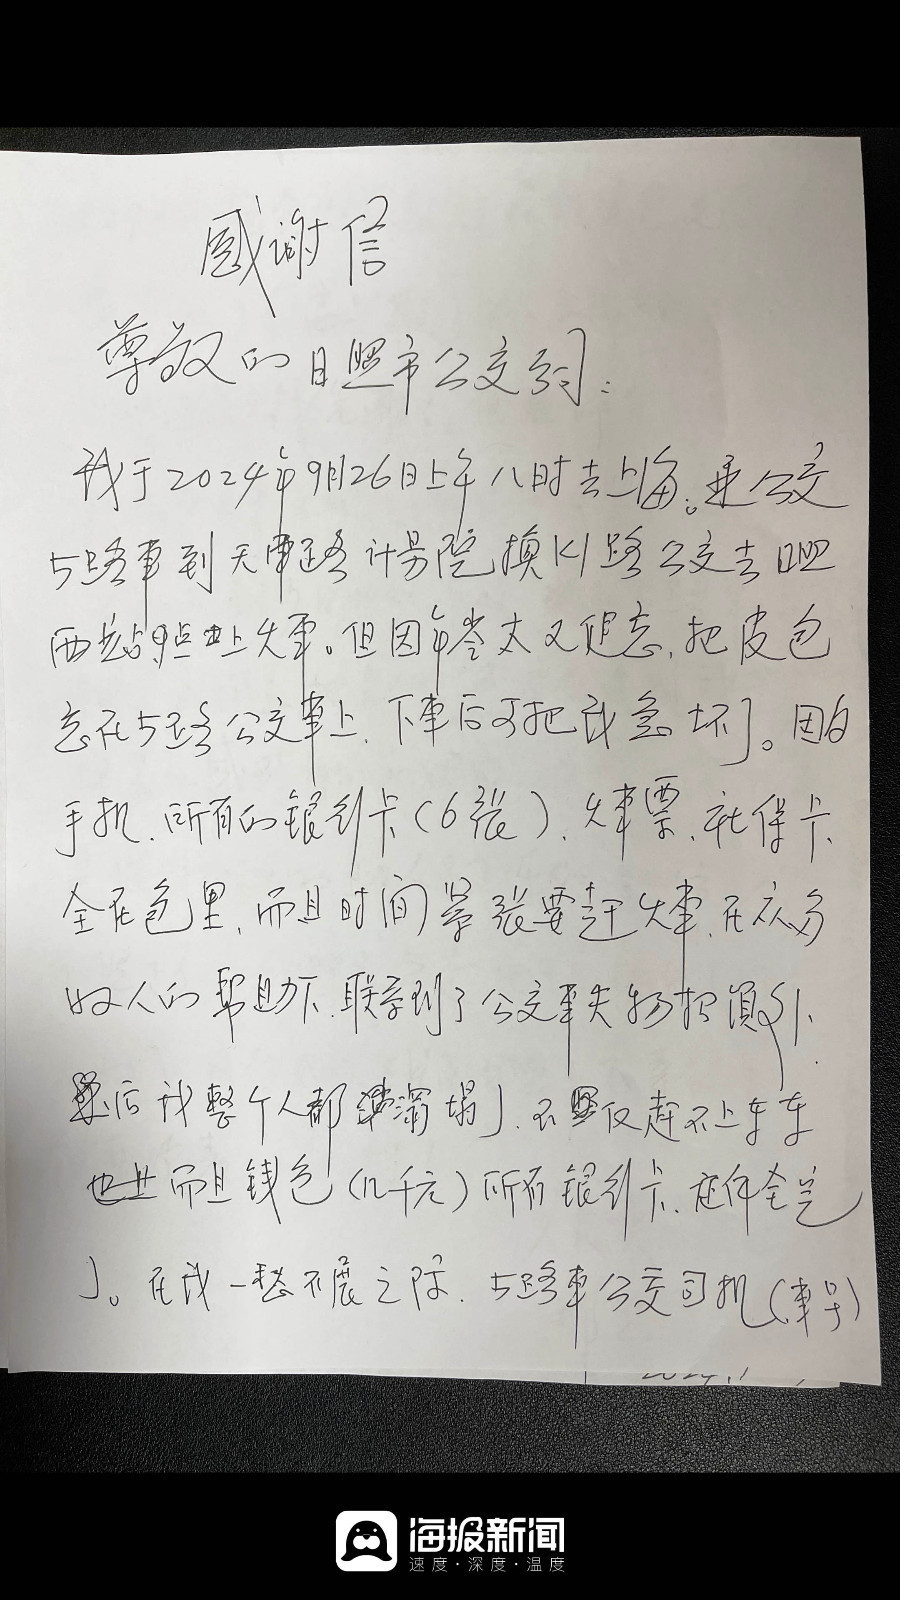 感谢信
尊敬的日照市公交公司：
我于2024年9月26日上午八时去上海。乘公交
5路车到天津路计易院换K1路公交去日照
西站9点上火车。但因年岁大又健忘，把皮包
忘在5路公交车上，下车后可把我急坏了。因为
手机、所有的银行卡（6张）、火车票、社保卡
全在包里，而且时间紧张要赶火车，在众多
好人的帮助下，联系到了公交车失物招领处，
然后我整个人都崩塌了，不仅赶不上车
而且钱包（几千元）所有银行卡、证件全丢
了。在我一愁不展之际，5路车公交司机（车号
海报新闻
速度·深度·温度